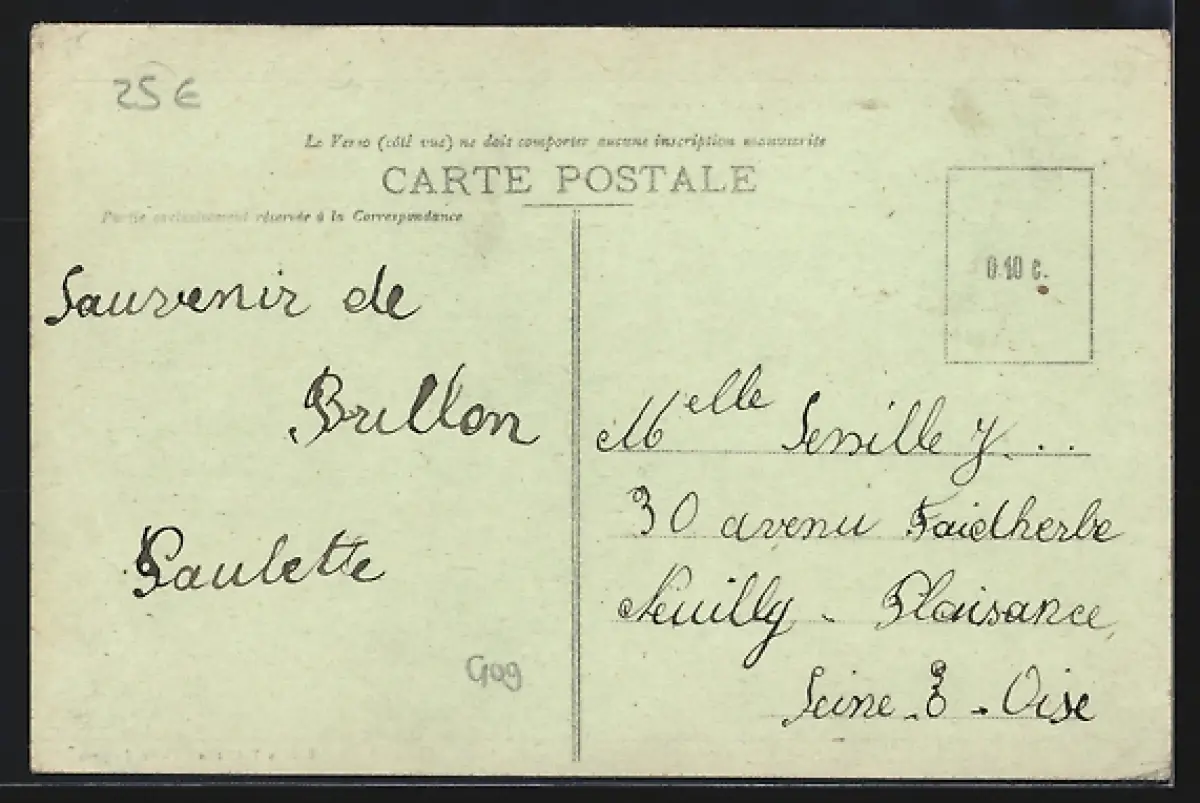 25 €
Le Verso (côté vue) ne doit comporter aucune inscription manuscrite
CARTE POSTALE
Partie exclusivement réservée à la Correspondance
0.10 c.
Souvenir de
Brillon
Paulette
Gog
Melle Senille Y...
30 avenu Faidherbe
Neuilly - Plaisance
Seine - E - Oise